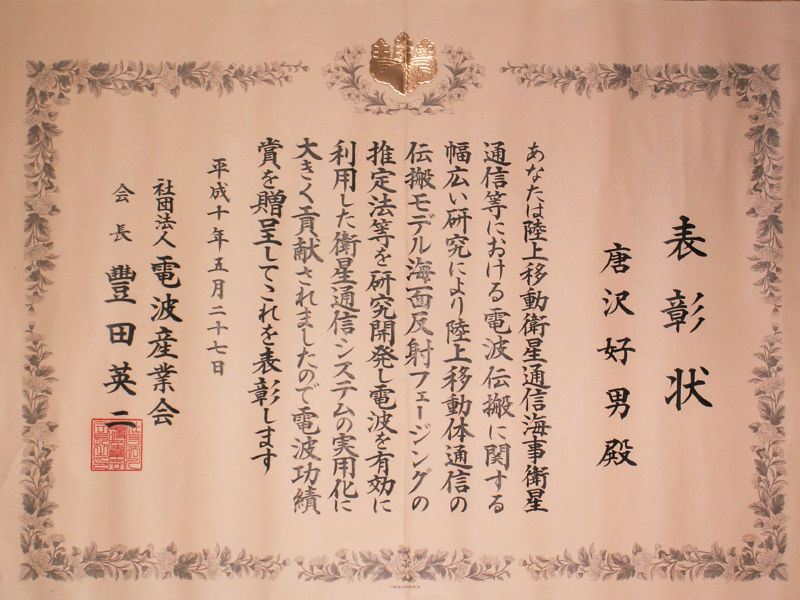 表彰状
唐沢好男殿
あなたは陸上移動衛星通信海事衛星
通信等における電波伝搬に関する
幅広い研究により陸上移動体通信の
伝搬モデル海面反射フェージングの
推定法等を研究開発し電波を有効に
利用した衛星通信システムの実用化に
大きく貢献されましたので電波功績
賞を贈呈してこれを表彰します
平成十年五月二十七日
社団法人電波産業会
会長 豊田英二